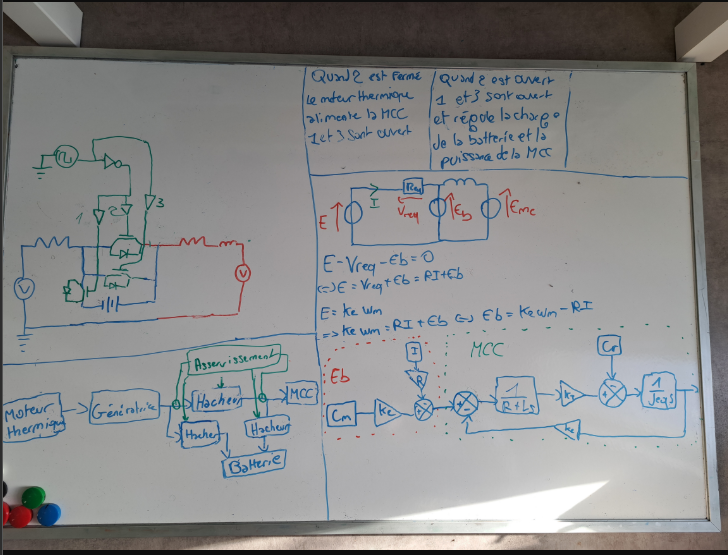 Quand 2 est fermé
le moteur thermique
alimente la MCC
1 et 3 sont ouvert
Quand 2 est ouvert
1 et 3 sont ouvert
et régule la charge
de la batterie et la
puissance de la MCC
1
2
3
V
V
E
I
Req
Vreq
Eb
Emc
E - Vreq - Eb = 0
<=> E = Vreq + Eb = RI + Eb
E = ke wm
=> ke wm = RI + Eb <=> Eb = ke wm - RI
Asservissement
Moteur
thermique
Génératrice
Hacheur
MCC
Hacheur
Hacheur
Batterie
Eb
I
R
Cm
ke
+
-
MCC
+
-
1
R + Ls
Cr
+
-
1
Jeqs
ke